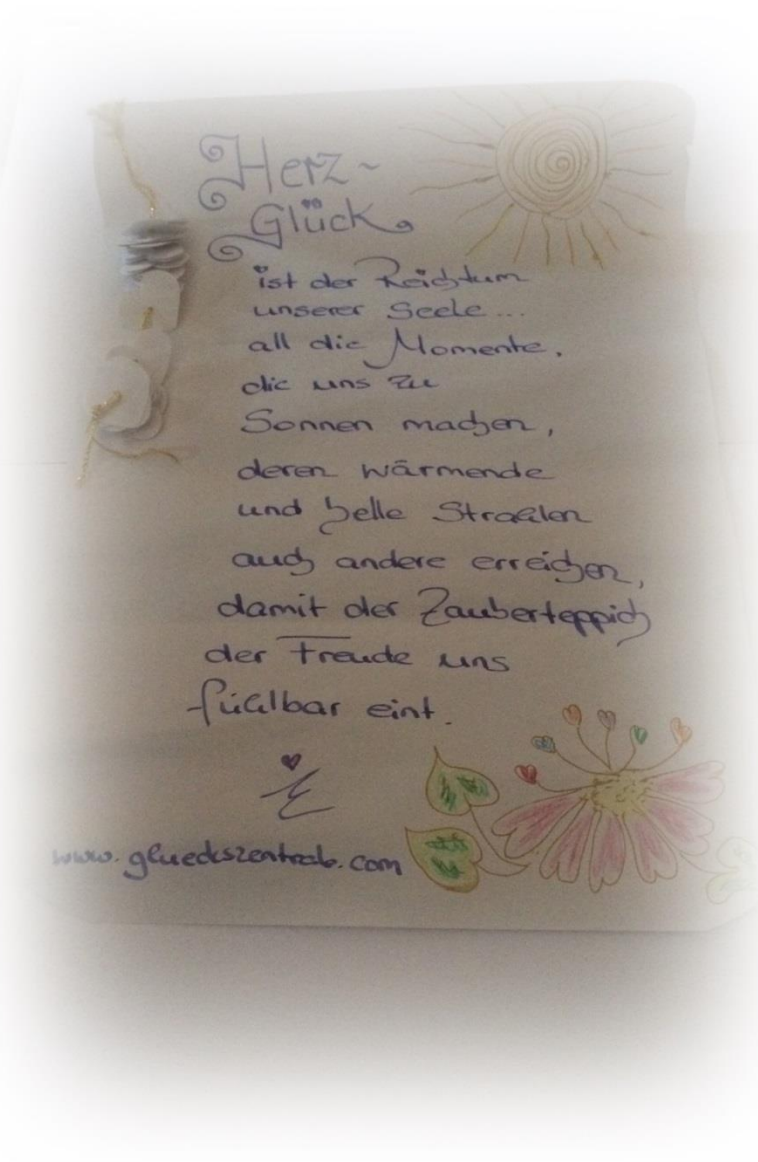 Herz~
Glück
ist der Reichtum
unserer Seele...
all die Momente,
die uns zu
Sonnen machen,
deren wärmende
und helle Strahlen
auch andere erreichen,
damit der Zauberteppich
der Freude uns
fühlbar eint.
www.glueckszentrale.com